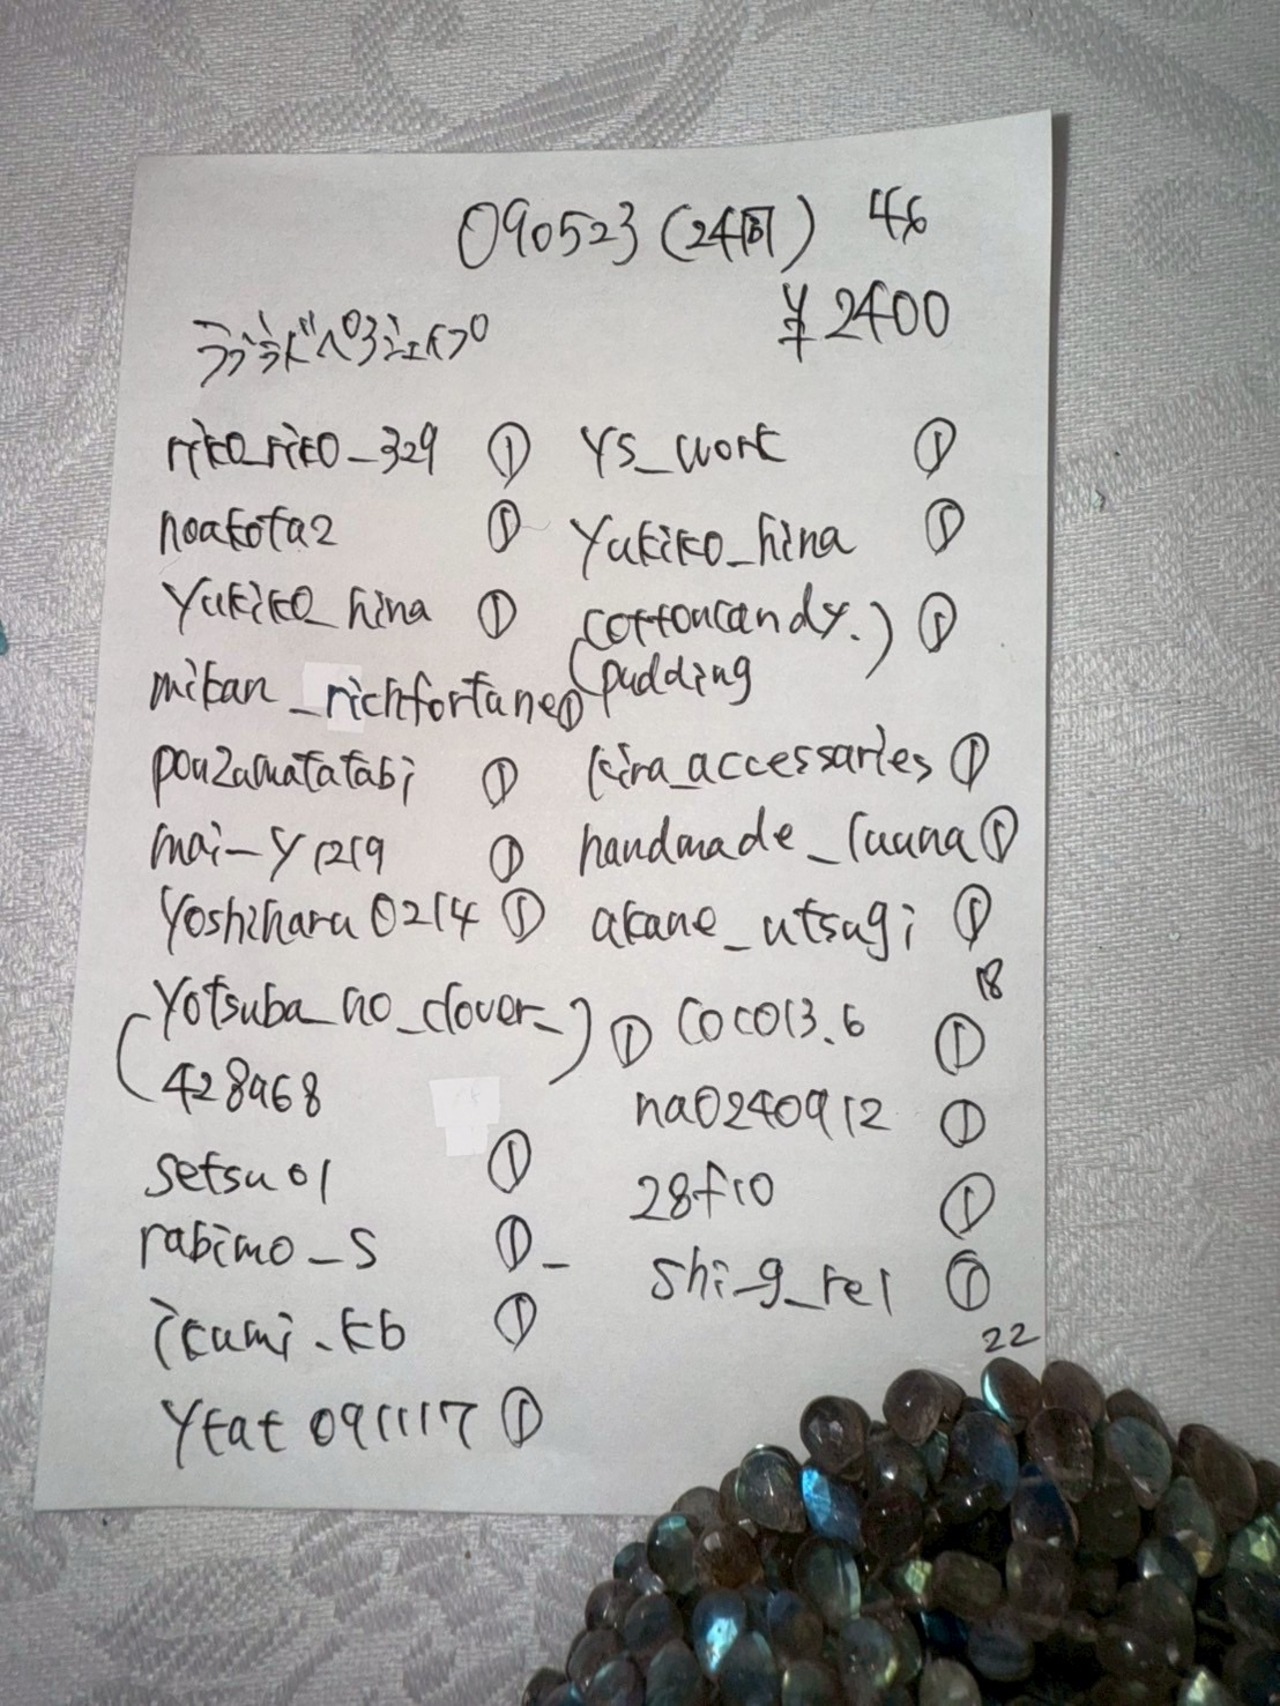 090523 (24回) 46
¥2400
ラブラドペアシェイプ
riko_riko_329 ①
noakota2 ①
Yukiko_hina ①
mikan_richfortune ①
pouzamatatabi ①
mai_y1219 ①
Yoshiharu0214 ①
(Yotsuba_no_clover_
428968) ①
setsu01 ①
rabimo_s ①_
ikumi.kb ①
Ytat091117 ①
YS_work ①
Yukiko_hina ①
(cottoncandy.
pudding) ①
kira_accessaries ①
handmade_luuna ①
akane_utsugi ①
18
coco13.6 ①
na0240912 ①
28f10 ①
shi_g_rel ①
22